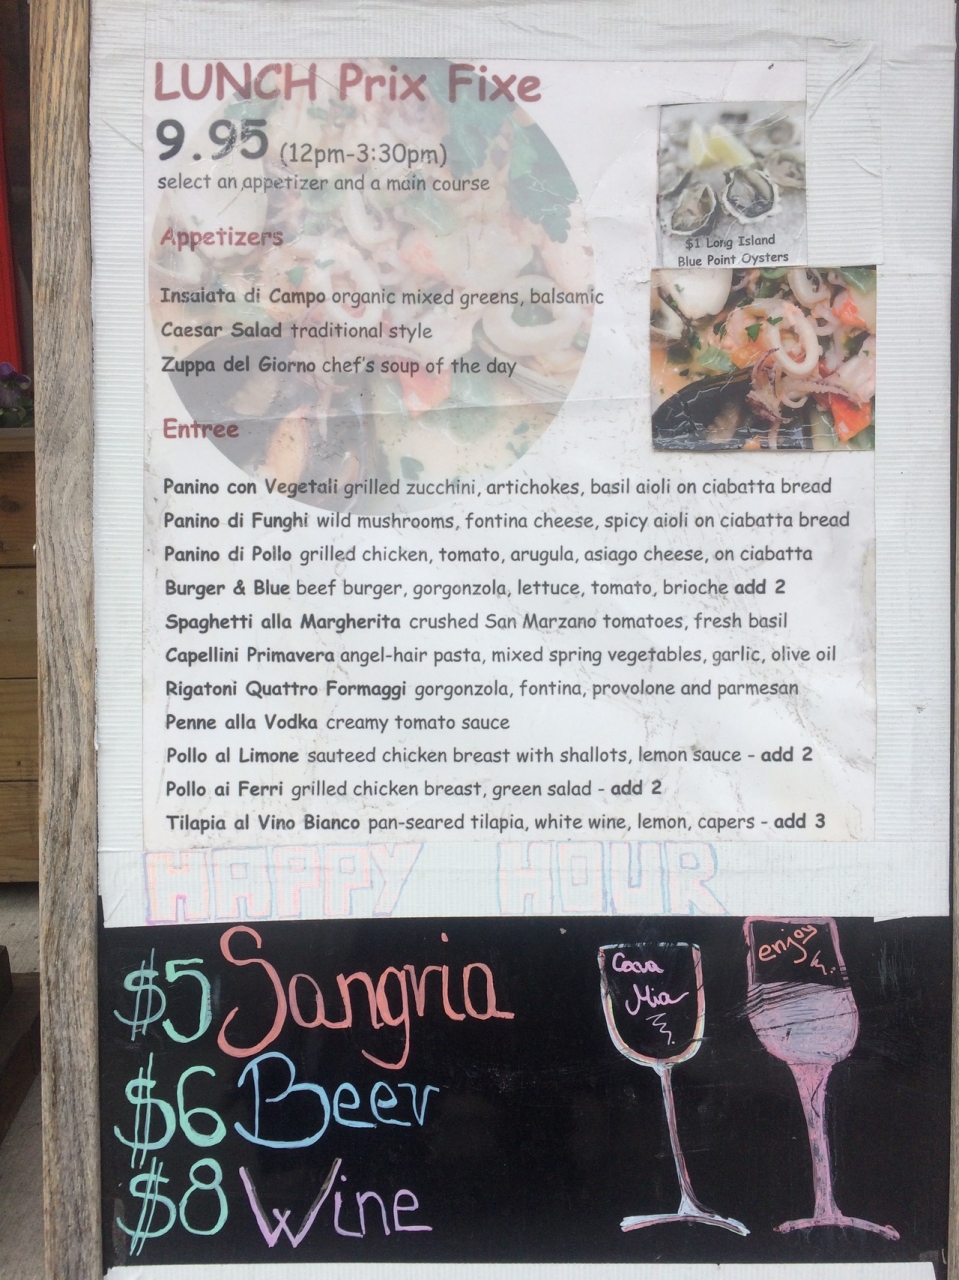 LUNCH Prix Fixe
9.95 (12pm-3:30pm)
select an appetizer and a main course
$1 Long Island
Blue Point Oysters
Appetizers
Insalata di Campo organic mixed greens, balsamic
Caesar Salad traditional style
Zuppa del Giorno chef's soup of the day
Entree
Panino con Vegetali grilled zucchini, artichokes, basil aioli on ciabatta bread
Panino di Funghi wild mushrooms, fontina cheese, spicy aioli on ciabatta bread
Panino di Pollo grilled chicken, tomato, arugula, asiago cheese, on ciabatta
Burger & Blue beef burger, gorgonzola, lettuce, tomato, brioche add 2
Spaghetti alla Margherita crushed San Marzano tomatoes, fresh basil
Capellini Primavera angel-hair pasta, mixed spring vegetables, garlic, olive oil
Rigatoni Quattro Formaggi gorgonzola, fontina, provolone and parmesan
Penne alla Vodka creamy tomato sauce
Pollo al Limone sauteed chicken breast with shallots, lemon sauce - add 2
Pollo ai Ferri grilled chicken breast, green salad - add 2
Tilapia al Vino Bianco pan-seared tilapia, white wine, lemon, capers - add 3
HAPPY HOUR
$5 Sangria
$6 Beer
$8 Wine
Mia
enjoy